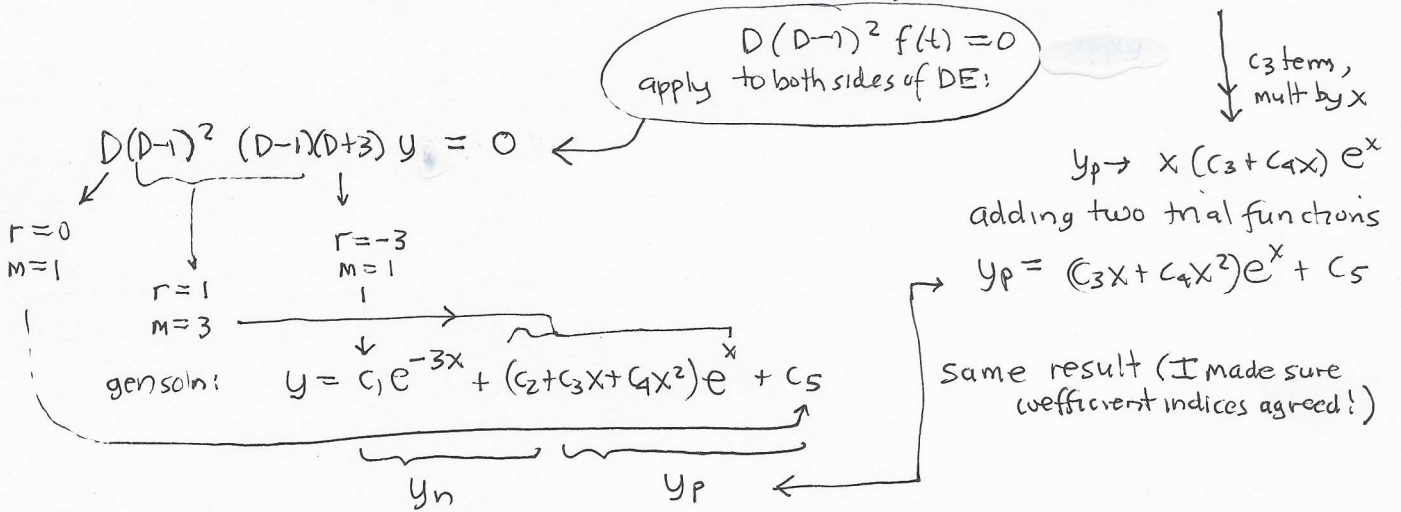 D(D-1)² f(t) = 0
apply to both sides of DE:
D(D-1)² (D-1)(D+3) y = 0
r=0
m=1
r=1
m=3
r=-3
m=1
gen soln: y = c₁e^{-3x} + (c₂+c₃x+c₄x²)e^x + c₅
y_h
y_p
c₃ term,
mult by x
y_p → x (c₃ + c₄x) e^x
adding two trial functions
y_p = (c₃x + c₄x²)e^x + c₅
same result (I made sure
coefficient indices agreed!)